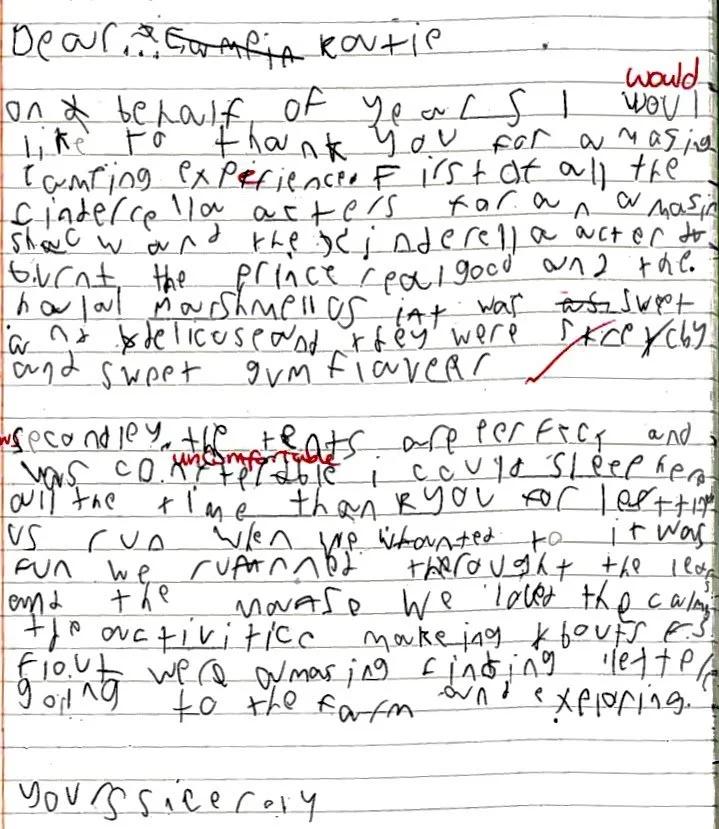 Dear Routie
would
on behalf of year 5 I woul
like to thank you for amasing
Camping experience. First of all the
Cindercella acters for an amasin
shac w and the cinderella acter to
burnt the prince real good and the.
halal Marshmellos it was sweet
and delicouse and they were stretchy
and sweet gum flaveer
secondley the tents are perfect and
uncomfortable
was i could sleep here
all the time thank you for letting
us run when we whanted to it was
fun we runned therought the
and the we loved the calm
the activities makeing
flout were amasing finding letters
going to the farm and exploring.
yours sicerely